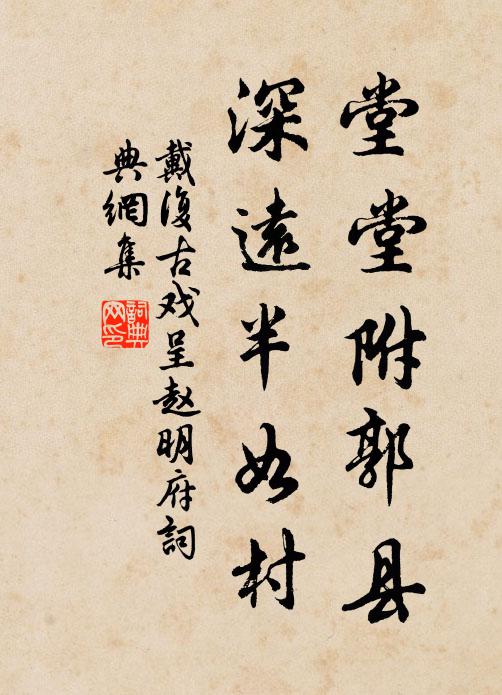 堂堂附郭县
深遠半如村
戴復古戏呈赵明府詞
典網集
詞典网印